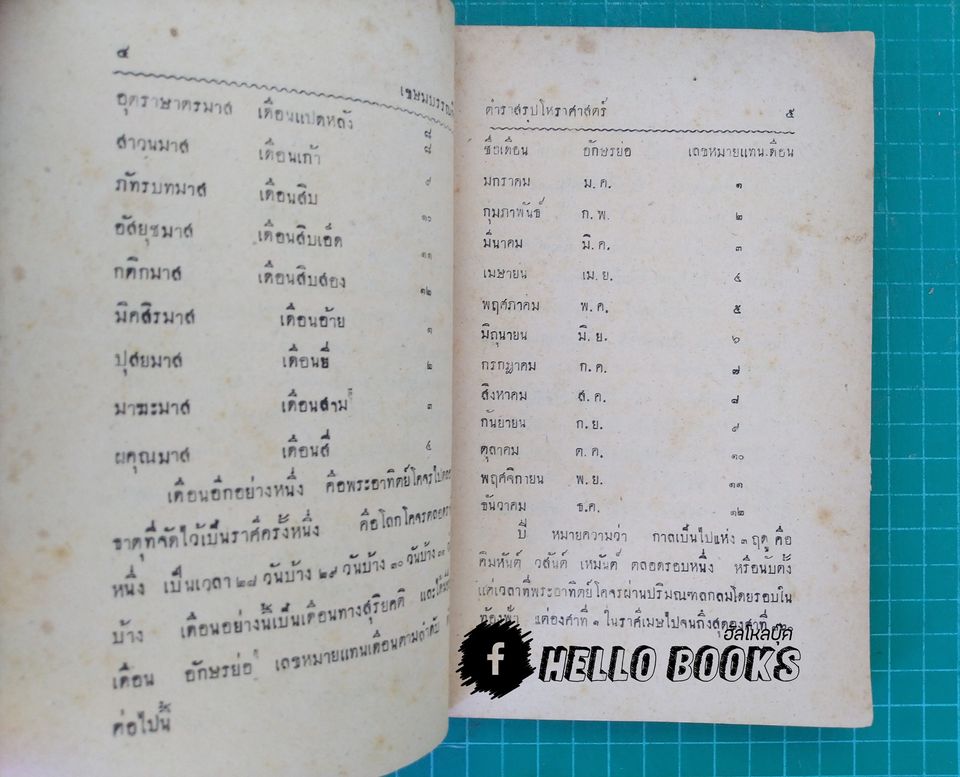 ๔
เขษมบรรณ
อุตราษาตรมาส เดือนแปดหลัง ๘
สาวนมาส เดือนเก้า ๙
ภัทรบทมาส เดือนสิบ ๑๐
อัสยุชมาส เดือนสิบเอ็ด ๑๑
กติกมาส เดือนสิบสอง ๑๒
มิคสิรมาส เดือนอ้าย ๑
ปุสยมาส เดือนยี่ ๒
มาฆะมาส เดือนสาม ๓
ผคุณมาส เดือนสี่ ๔
เดือนอีกอย่างหนึ่ง คือพระอาทิตย์โคจรไป
ธาตุที่จัดไว้เป็นราศีครั้งหนึ่ง คือโลกโคจร
หนึ่ง เป็นเวลา ๒๘ วันบ้าง ๒๙ วันบ้าง ๓๐ วันบ้าง ๓๑
บ้าง เดือนอย่างนี้เป็นเดือนทางสุริยคติ และ
เดือน อักษรย่อ เลขหมายแทนเดือนตามลำดับ
ต่อไปนี้
ตำราสรุปโหราศาสตร์ ๕
ชื่อเดือน อักษรย่อ เลขหมายแทนเดือน
มกราคม ม.ค. ๑
กุมภาพันธ์ ก.พ. ๒
มีนาคม มี.ค. ๓
เมษายน เม.ย. ๔
พฤศภาคม พ.ค. ๕
มิถุนายน มิ.ย. ๖
กรกฎาคม ก.ค. ๗
สิงหาคม ส.ค. ๘
กันยายน ก.ย. ๙
ตุลาคม ต.ค. ๑๐
พฤศจิกายน พ.ย. ๑๑
ธันวาคม ธ.ค. ๑๒
ปี หมายความว่า กาลเป็นไปแห่ง ๓ ฤดู คือ
คิมหันต์ วสันต์ เหมันต์ ตลอดรอบหนึ่ง หรือนับตั้ง
แต่เวลาที่พระอาทิตย์โคจรผ่านปริมณฑลกลมโดยรอบใน
ท้องฟ้า แต่องศาที่ ๑ ในราศีเมษไปจนถึงสุดองศาที่ ๓๐
ฮัลโหลบุ๊ค
f HELLO BOOKS